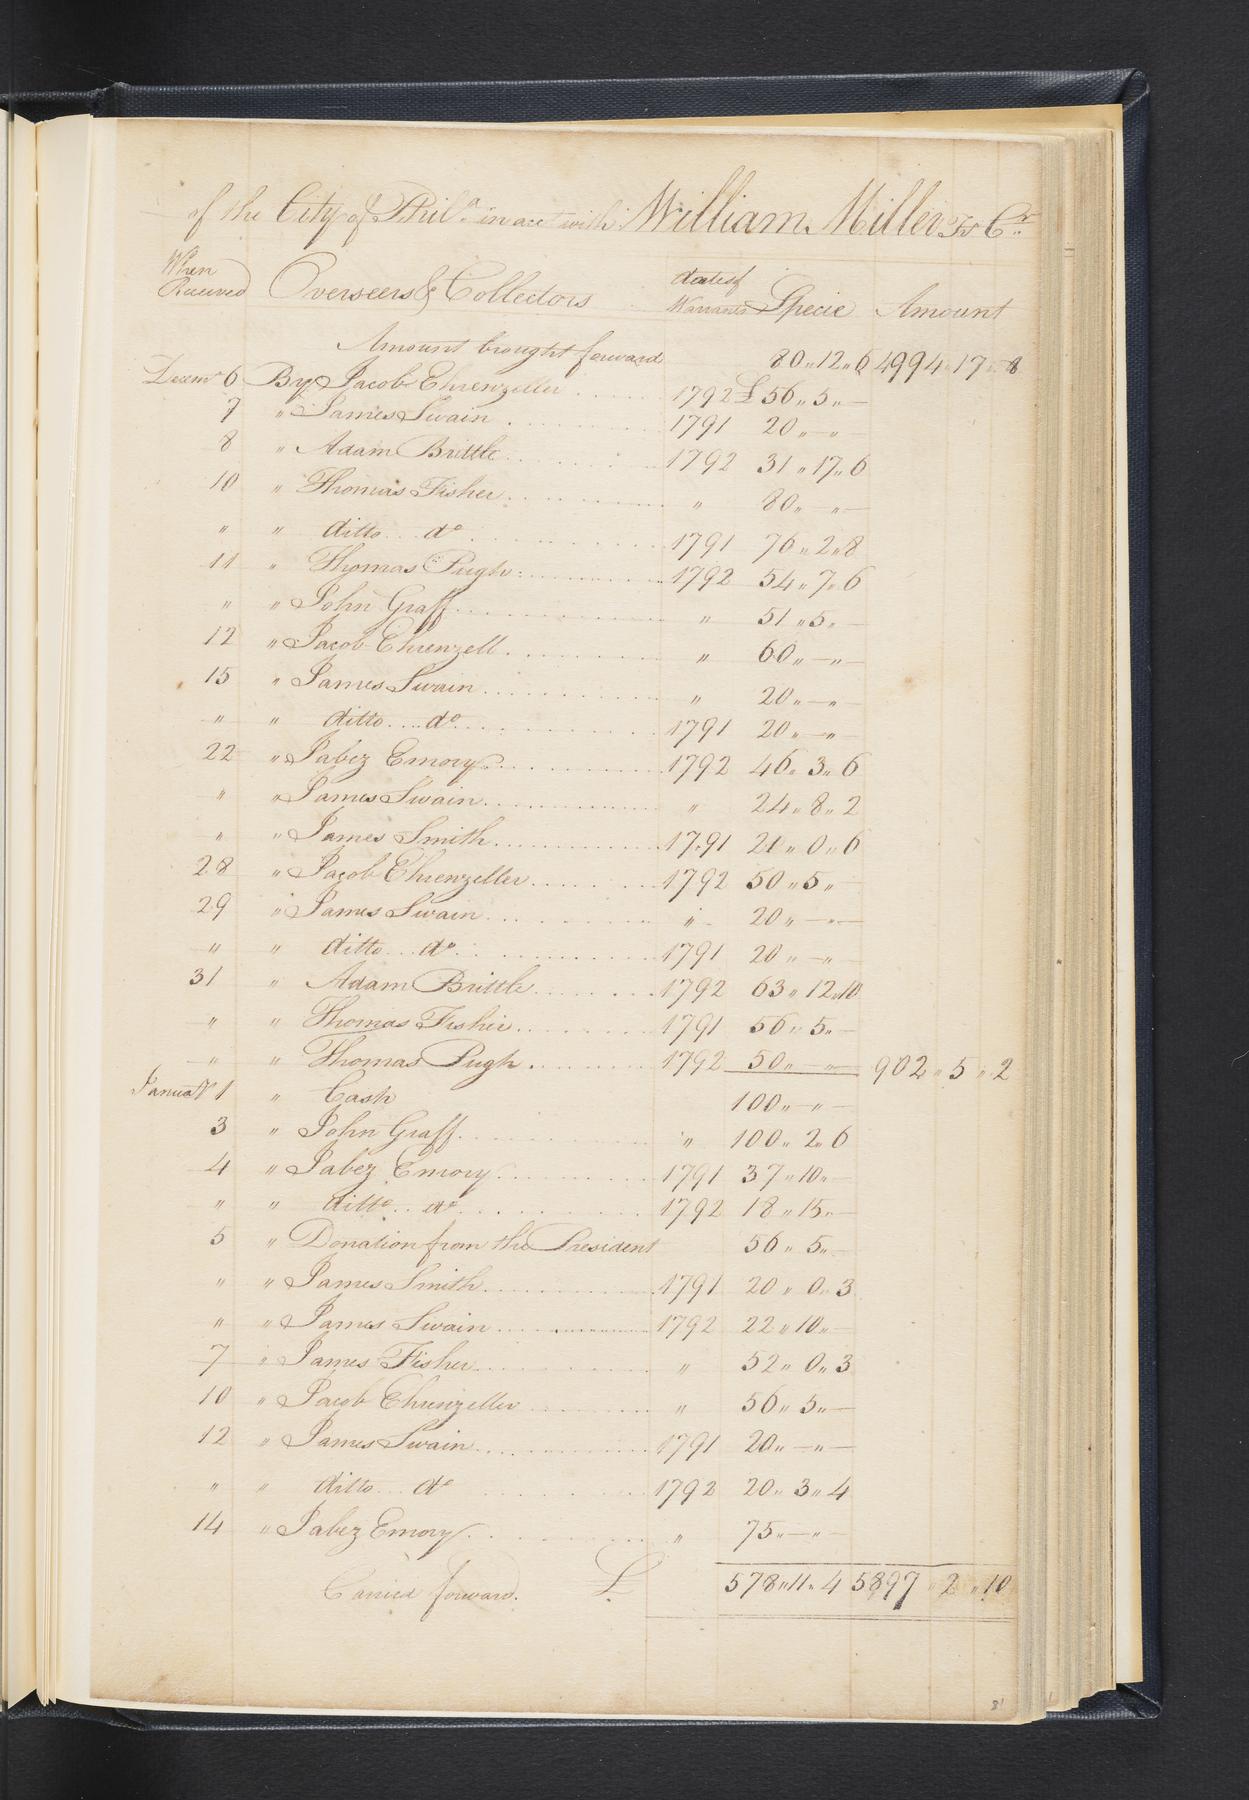 of the City of Phila. in acct with William Miller Tr Cr.
When Received Overseers & Collectors dates of Warrants Specie Amount
Amount brought forward 80 „ 12 „ 6 4994 „ 17 „ 8
Decemr 6 By Jacob Ehrenzeller 1792 £ 56 „ 5 „ —
7 „ James Swain 1791 20 „ — „ —
8 „ Adam Brittle 1792 31 „ 17 „ 6
10 „ Thomas Fisher „ 80 „ — „ —
„ „ ditto do 1791 76 „ 2 „ 8
11 „ Thomas Pugh 1792 54 „ 7 „ 6
„ „ John Graff „ 51 „ 5 „ —
12 „ Jacob Ehrenzell „ 60 „ — „ —
15 „ James Swain „ 20 „ — „ —
„ „ ditto do 1791 20 „ — „ —
22 „ Jabez Emory 1792 46 „ 3 „ 6
„ „ James Swain „ 24 „ 8 „ 2
„ „ James Smith 1791 21 „ 0 „ 6
28 „ Jacob Ehrenzeller 1792 50 „ 5 „ —
29 „ James Swain „ 20 „ — „ —
„ „ ditto do 1791 20 „ — „ —
31 „ Adam Brittle 1792 63 „ 12 „ 10
„ „ Thomas Fisher 1791 56 „ 5 „ —
„ „ Thomas Pugh 1792 50 „ — „ — 902 „ 5 „ 2
Januar 1 „ Cash 100 „ — „ —
3 „ John Graff „ 100 „ 2 „ 6
4 „ Jabez Emory 1791 37 „ 10 „ —
„ „ ditto do 1792 18 „ 15 „ —
5 „ Donation from the President 56 „ 5 „ —
„ „ James Smith 1791 20 „ 0 „ 3
„ „ James Swain 1792 22 „ 10 „ —
7 „ James Fisher „ 52 „ 0 „ 3
10 „ Jacob Ehrenzeller „ 56 „ 5 „ —
12 „ James Swain 1791 20 „ — „ —
„ „ ditto do 1792 20 „ 3 „ 4
14 „ Jabez Emory „ 75 „ — „ —
Carried forward. £ 578 „ 11 „ 4 5897 „ 2 „ 10
81